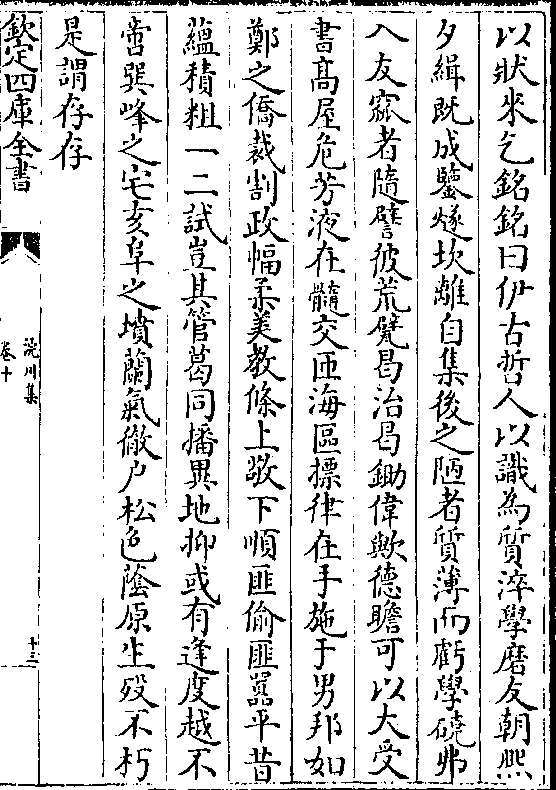 以狀來乞銘銘曰伊古哲人以識為質淬學磨友朝熙
夕緝既成鑒燧坎離自集後之陋者質薄而虧學磽弗
入友窳者隨譬彼荒甓曷治曷鋤偉歟德瞻可以大受
書高屋危芳液在髓交匝海區摽律在手施于男邦如
鄭之僑裁割政幅柔美教條上敬下順匪偷匪囂平昔
蘊積粗一二試豈其管葛同播異地抑或有逢度越不
啻巽峰之宅亥阜之墳蘭氣徹户松色蔭原生殁不朽
是謂存存
欽定四庫全書
浣川集
卷十
十三